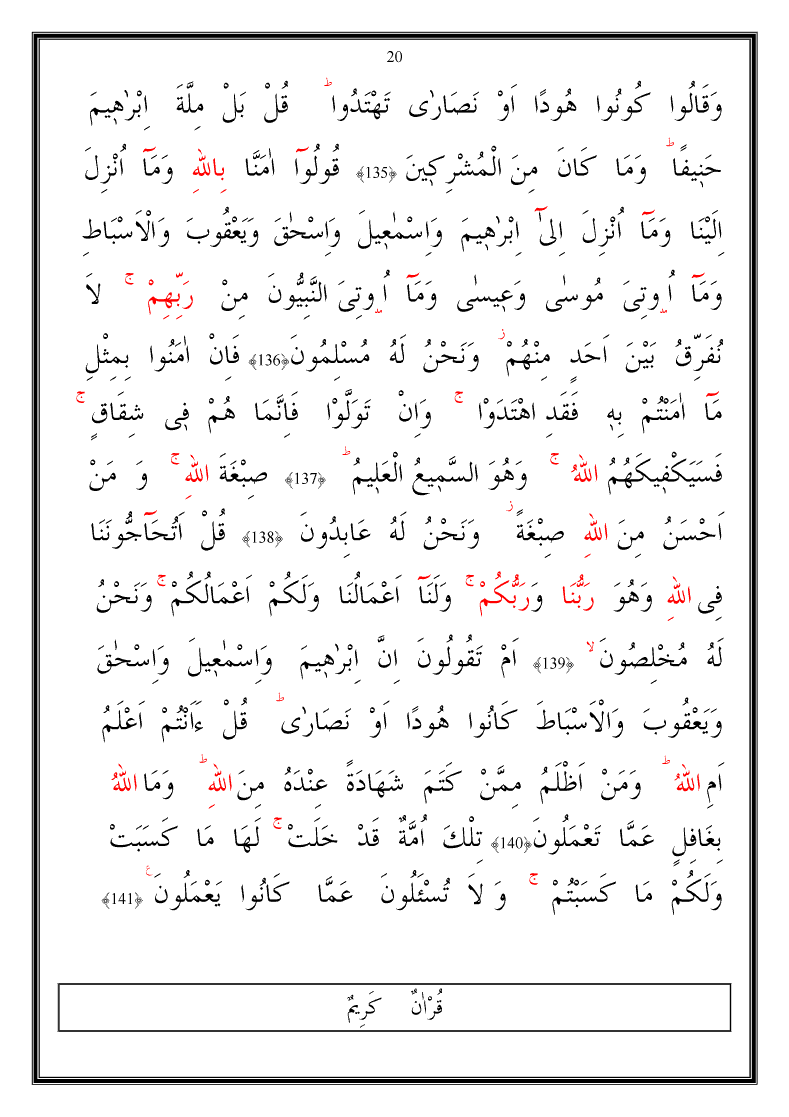 20
وَقَالُوا كُونُوا هُودًا اَوْ نَصَارٰى تَهْتَدُواۜ قُلْ بَلْ مِلَّةَ اِبْرٰه۪يمَ
حَن۪يفًاؕ وَمَا كَانَ مِنَ الْمُشْرِك۪ينَ ﴿135﴾ قُولُوٓا اٰمَنَّا بِاللهِ وَمَٓا اُنْزِلَ
اِلَيْنَا وَمَٓا اُنْزِلَ اِلٰٓى اِبْرٰه۪يمَ وَاِسْمٰع۪يلَ وَاِسْحٰقَ وَيَعْقُوبَ وَالْاَسْبَاطِ
وَمَٓا اُو۫تِىَ مُوسٰى وَع۪يسٰى وَمَٓا اُو۫تِىَ النَّبِيُّونَ مِنْ رَبِّهِمْۚ لاَ
نُفَرِّقُ بَيْنَ اَحَدٍ مِنْهُمْؗ وَنَحْنُ لَهُ مُسْلِمُونَ ﴿136﴾ فَاِنْ اٰمَنُوا بِمِثْلِ
مَٓا اٰمَنْتُمْ بِه۪ فَقَدِ اهْتَدَوْاۚ وَاِنْ تَوَلَّوْا فَاِنَّمَا هُمْ ف۪ى شِقَاقٍۚ
فَسَيَكْف۪يكَهُمُ اللهُۚ وَهُوَ السَّم۪يعُ الْعَل۪يمُؕ ﴿137﴾ صِبْغَةَ اللهِۚ وَ مَنْ
اَحْسَنُ مِنَ اللهِ صِبْغَةًؗ وَنَحْنُ لَهُ عَابِدُونَ ﴿138﴾ قُلْ اَتُحَٓاجُّونَنَا
فِى اللهِ وَهُوَ رَبُّنَا وَرَبُّكُمْۚ وَلَنَٓا اَعْمَالُنَا وَلَكُمْ اَعْمَالُكُمْۚ وَنَحْنُ
لَهُ مُخْلِصُونَۙ ﴿139﴾ اَمْ تَقُولُونَ اِنَّ اِبْرٰه۪يمَ وَاِسْمٰع۪يلَ وَاِسْحٰقَ
وَيَعْقُوبَ وَالْاَسْبَاطَ كَانُوا هُودًا اَوْ نَصَارٰىؕ قُلْ ءَاَنْتُمْ اَعْلَمُ
اَمِ اللهُؕ وَمَنْ اَظْلَمُ مِمَّنْ كَتَمَ شَهَادَةً عِنْدَهُ مِنَ اللهِؕ وَمَا اللهُ
بِغَافِلٍ عَمَّا تَعْمَلُونَ ﴿140﴾ تِلْكَ اُمَّةٌ قَدْ خَلَتْۚ لَهَا مَا كَسَبَتْ
وَلَكُمْ مَا كَسَبْتُمْۚ وَ لاَ تُسْـَٔلُونَ عَمَّا كَانُوا يَعْمَلُونَ ع ﴿141﴾
قُرْاٰنٌ كَرِيمٌ